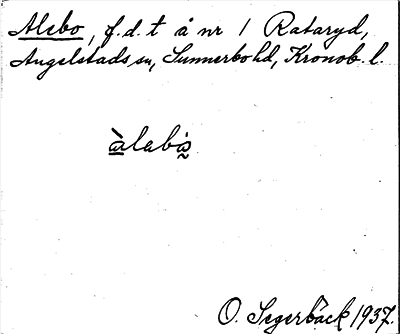 Alebo, f.d. t å nr 1 Rataryd,
Angelstads sn, Sunnerbo hd, Kronob. l.
àlabò̰
O. Segerbäck 1937.